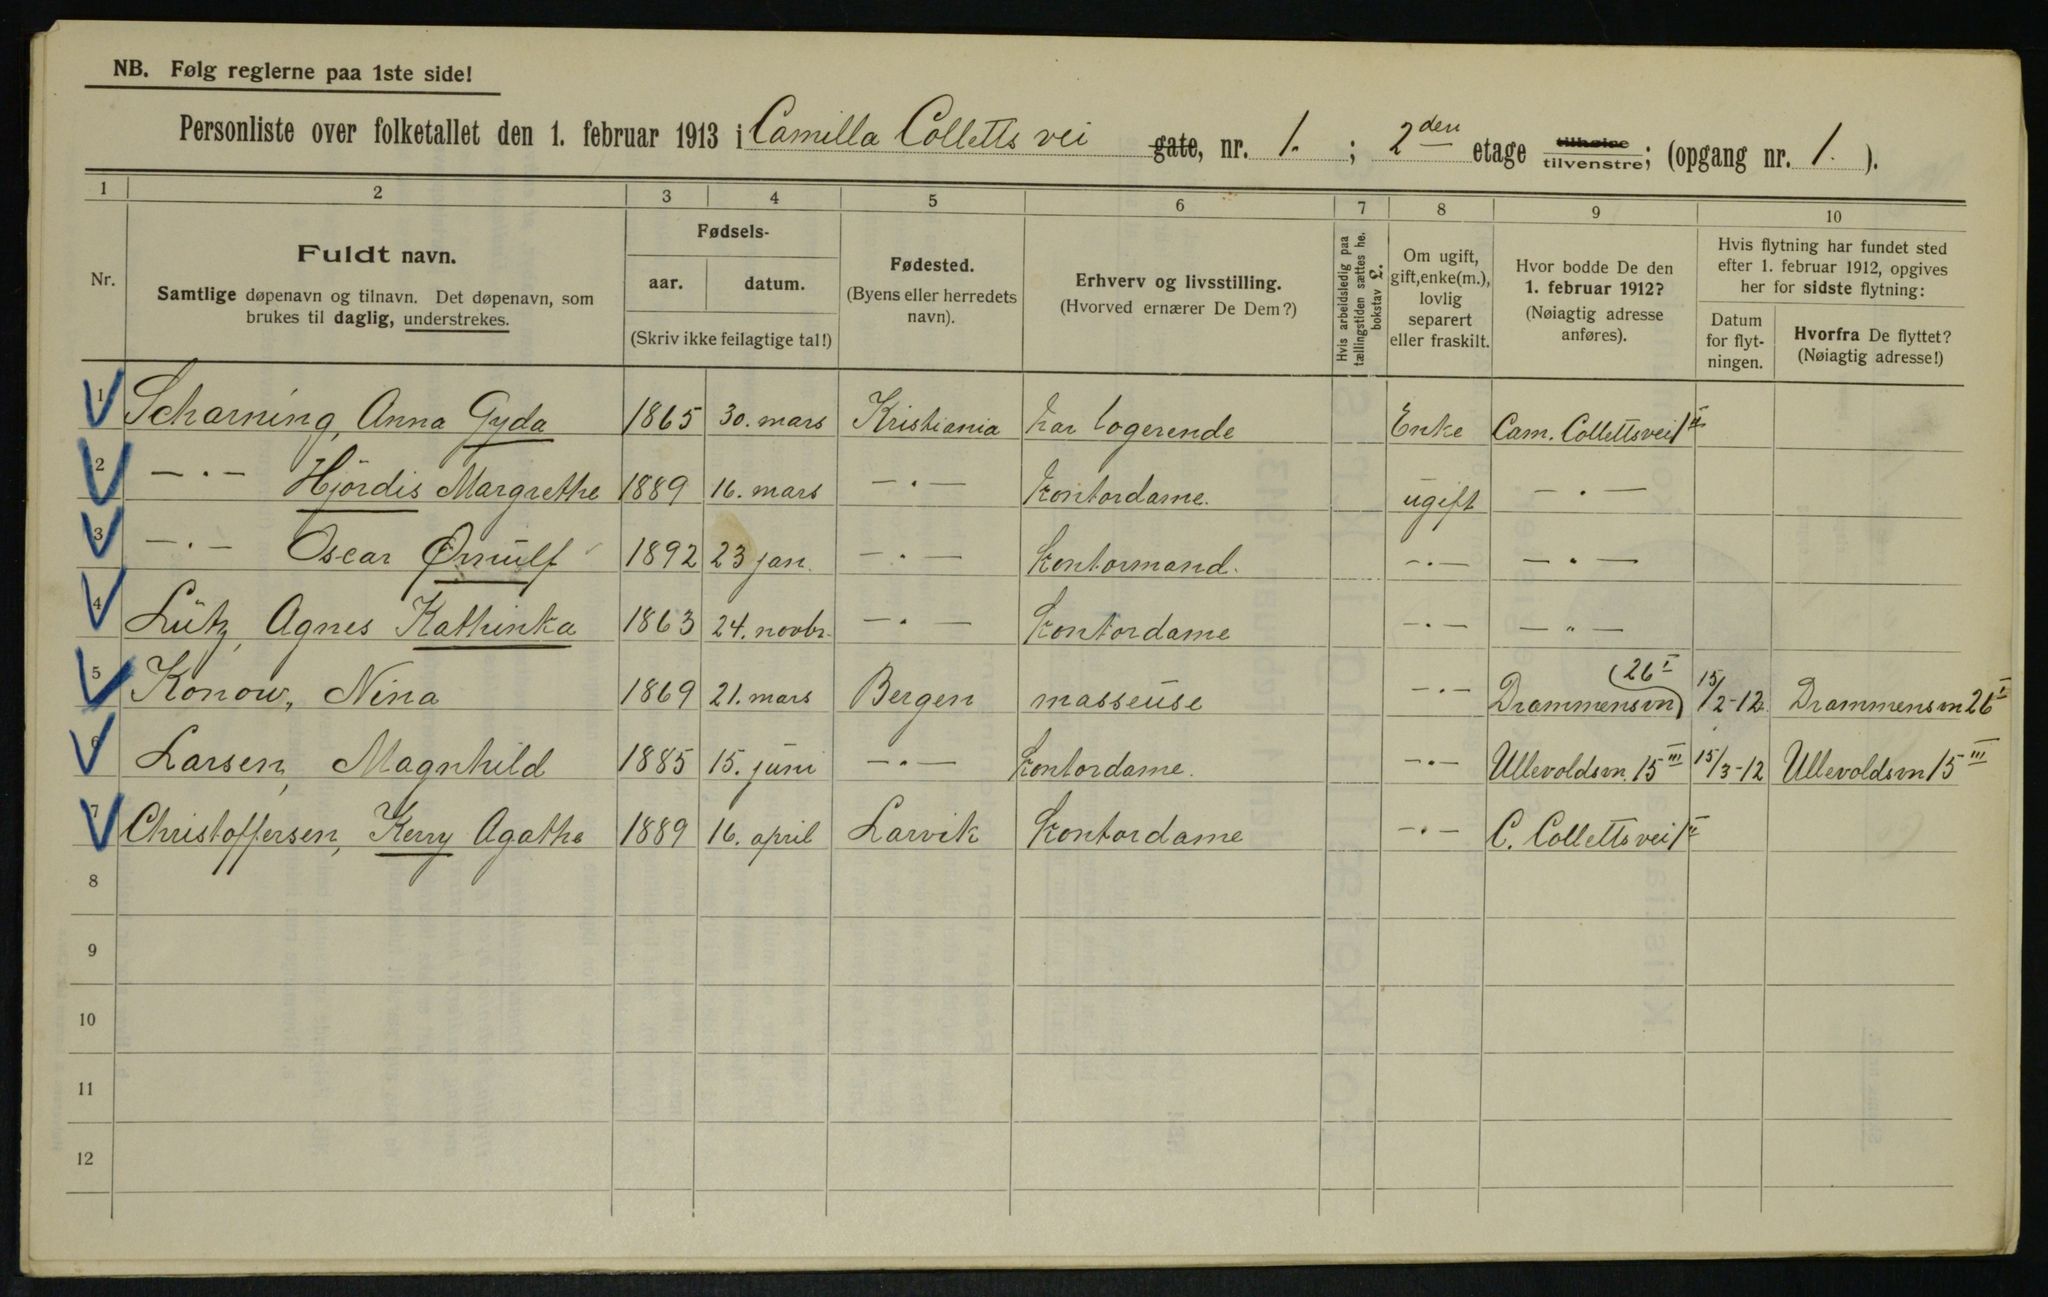 NB. Følg reglerne paa 1ste side!
Personliste over folketallet den 1. februar 1913 i Camilla Colletts vei gate, nr. 1. ; 2den etage tilhøire tilvenstre; (opgang nr. 1. ).
1 2 3 4 5 6 7 8 9 10
Nr.
Fuldt navn.
Samtlige døpenavn og tilnavn. Det døpenavn, som
brukes til daglig, understrekes.
Fødsels-
aar. datum.
(Skriv ikke feilagtige tal!)
Fødested.
(Byens eller herredets
navn).
Erhverv og livsstilling.
(Hvorved ernærer De Dem?)
Hvis arbeidsledig paa
tællingstiden sættes he.
bokstav L.
Om ugift,
gift, enke(m.),
lovlig
separert
eller fraskilt.
Hvor bodde De den
1. februar 1912?
(Nøiagtig adresse
anføres).
Hvis flytning har fundet sted
efter 1. februar 1912, opgives
her for sidste flytning:
Datum
for flyt-
ningen.
Hvorfra De flyttet?
(Nøiagtig adresse!)
1 Scharning, Anna Gyda 1865 30. mars Kristiania har logerende Enke Cam. Collettsvei 1 II
2 — . — Hjördis Margrethe 1889 16. mars — . — Kontordame. ugift — . —
3 — . — Oscar Ørnulf 1892 23 jan. — . — Kontormand. — . — — . —
4 Lütz, Agnes Kathinka 1863 24. novbr. — . — Kontordame — . — — „ —
5 Konow, Nina 1869 21. mars Bergen masseuse — . — Drammensvn 26 I 15/2-12. Drammensvn 26 I
6 Larsen, Magnhild 1885 15. juni — . — Kontordame. — . — Ullevoldsvn. 15 III 15/3-12 Ullevoldsvn 15 III
7 Christoffersen, Kerry Agathe 1889 16. april Larvik Kontordame — . — C. Collettsvei 1 II
8
9
10
11
12